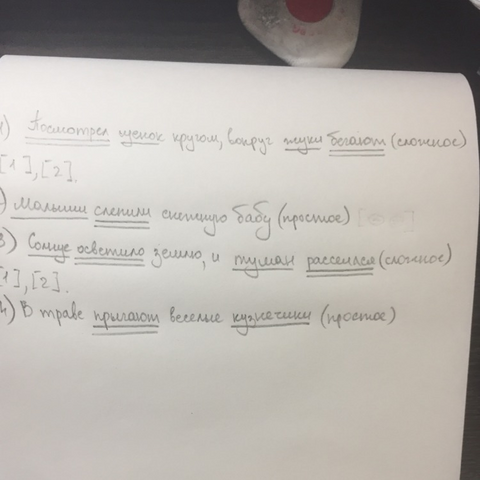 1) Посмотрел щенок кругом, вокруг жуки бегают (сложное)
[1], [2].
) Малыши слепили снежную бабу (простое)
3) Солнце осветило землю, и туман рассеялся (сложное)
[1], [2].
4) В траве прыгают веселые кузнечики (простое)